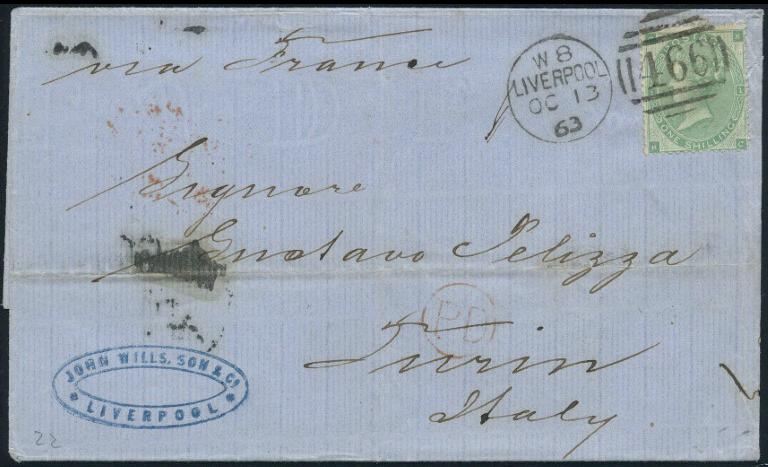 via France
W 8
LIVERPOOL
OC 13
63
466
ONE SHILLING
H C
Signore
Gustavo Pelizza
PD
Turin
Italy
JOHN WILLS, SON & Co
LIVERPOOL
22